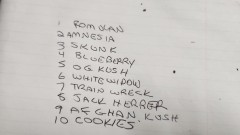 1 ROMULAN
2 AMNESIA
3 SKUNK
4 BLUEBERRY
5 OG KUSH
6 WHITE WIDOW
7 TRAIN WRECK
8 JACK HERRER
9 AFGHAN KUSH
10 COOKIES